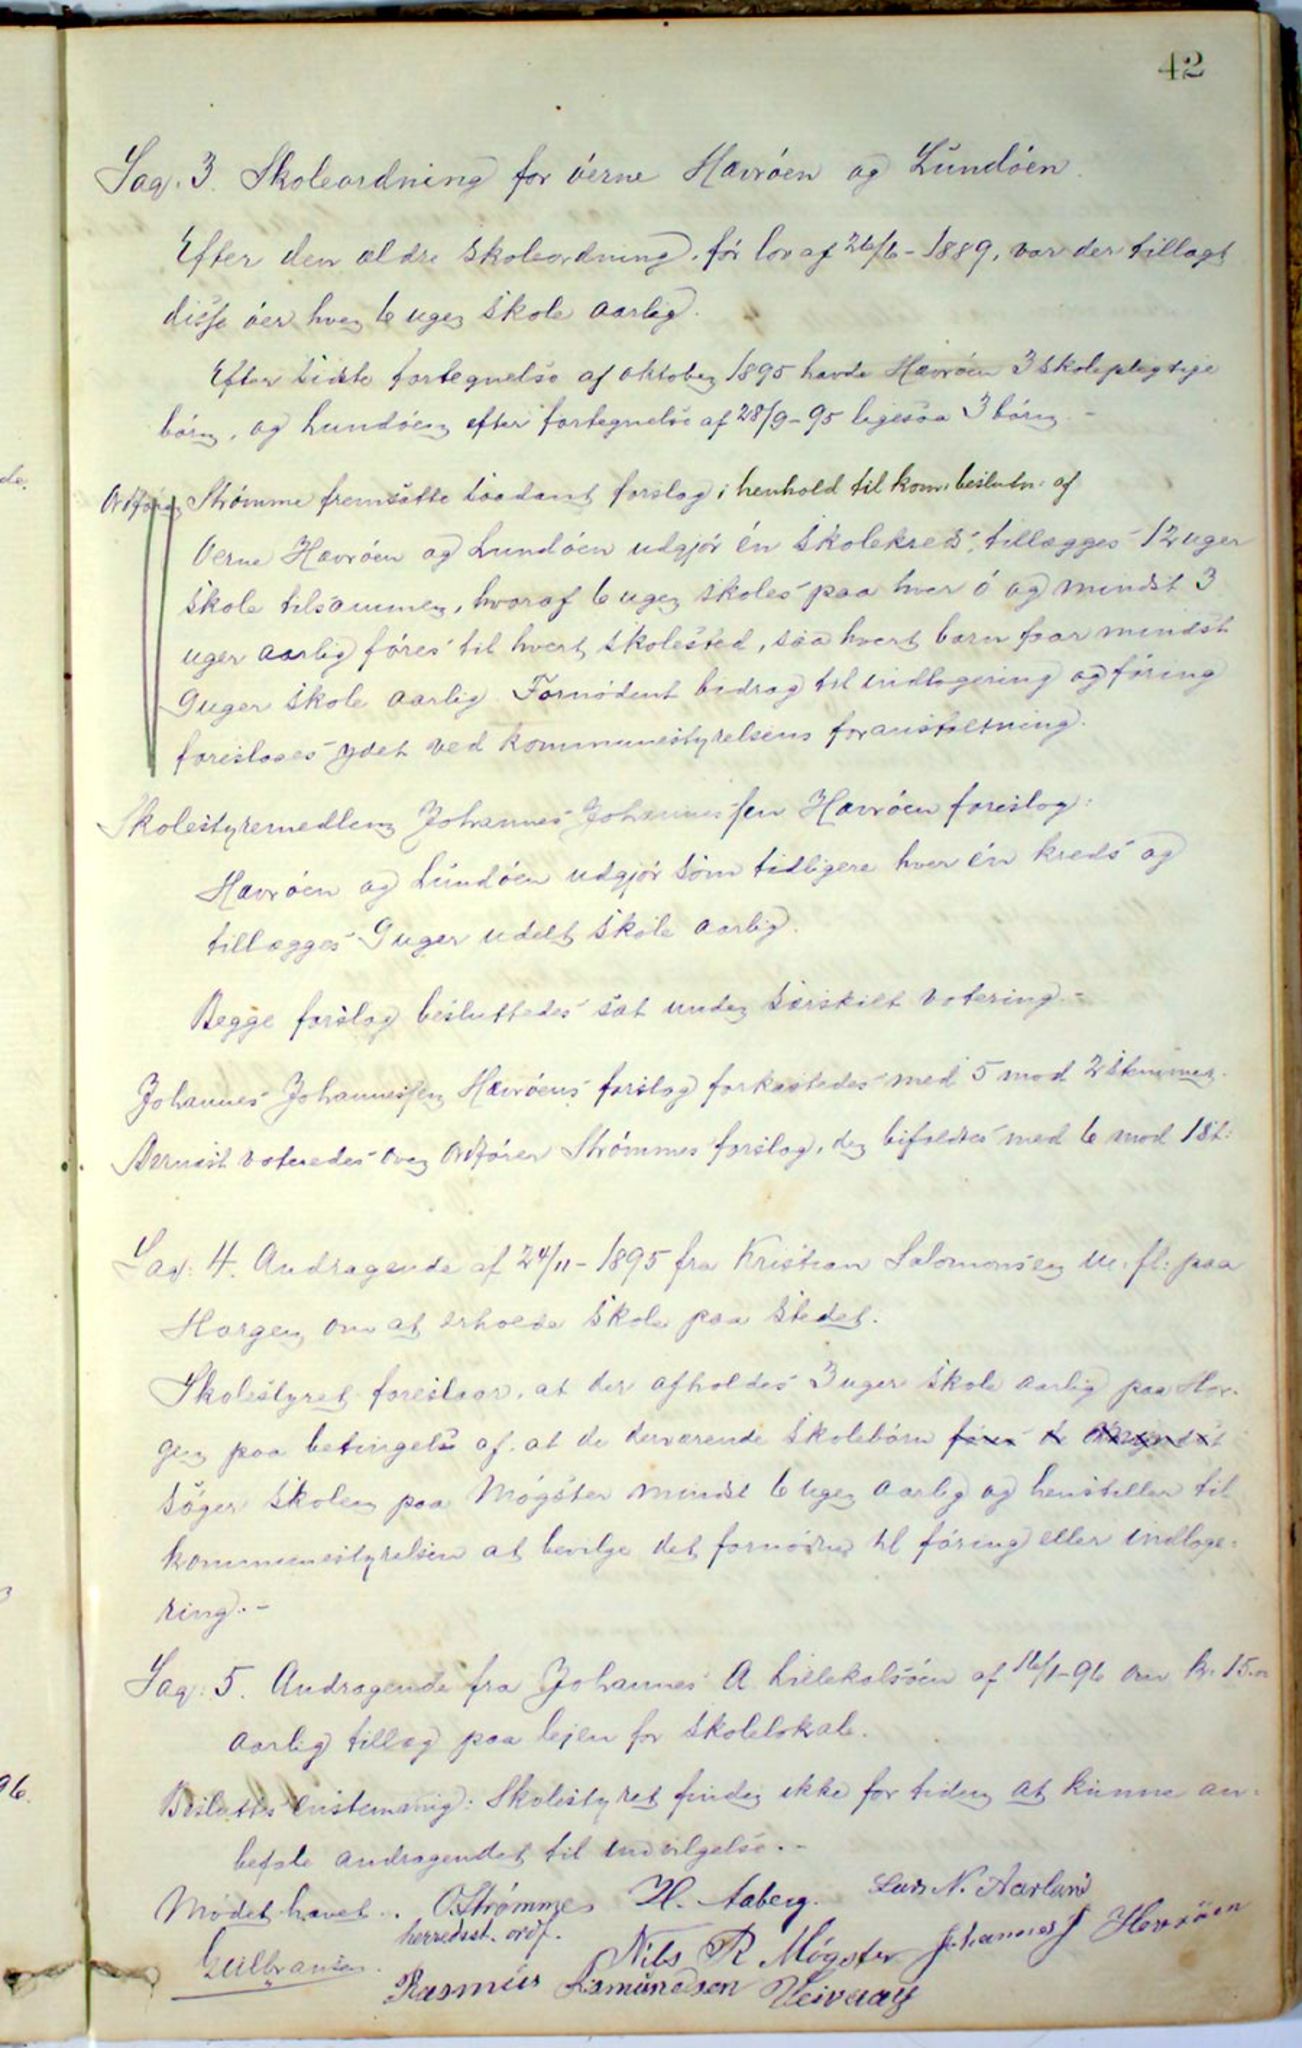 42
Sag. 3. Skoleordning for óerne Havróen og Lundóen.
Efter den ældre skoleordning, fór lov af 26/6 - 1889, var der tillagt
disse óer hver 6 uger skole aarlig.
Efter sidste fortegnelse af oktober 1895 havde Havróen 3 skolepligtige
bórn, og Lundóen efter fortegnelse af 28/9 - 95 ligesaa 3 bórn. -
Ordfórer Strómme fremsatte saadant forslag i henhold til kom. beslutn. af
Óerne Havróen og Lundóen udgjór én skolekreds, tillægges 12 uger
skole tilsammen, hvoraf 6 uger skoles paa hver ó og mindst 3
uger aarlig fóres til hvert skolested, saa hvert barn faar mindst
9 uger skole aarlig. Fornódent bidrag til indlogering og fóring
foreslaaes ydet ved kommunestyrelsens foranstaltning.
Skolestyremedlem Johannes Johannessen Havróen foreslog:
Havróen og Lundóen udgjór som tidligere hver én kreds og
tillægges 9 uger udelt skole aarlig.
Begge forslag besluttedes sat under særskilt votering. -
Johannes Johannessen Havróens forslag forkastedes med 5 mod 2 stemmer.
Dernæst voteredes over ordfórer Strómmes forslag, der bifaldtes med 6 mod 1 st:
Sag: 4. Andragende af 24/11 - 1895 fra Kristian Salomonsen m. fl: paa
Horgen om at erholde skole paa stedet.
Skolestyret foreslaar, at der afholdes 3 uger skole aarlig paa Hor-
gen paa betingelse af at de derværende skolebórn
sóger skolen paa Mógster mindst 6 uger aarlig og henstiller til
kommunestyrelsen at bevilge det fornódne til fóring eller indloge-
ring. -
Sag: 5. Andragende fra Johannes A. Lillekalsóen af 16/1 - 96 om kr. 15.00
aarlig tillæg paa lejen for skolelokale.
Besluttes enstemmig: Skolestyret finder ikke for tiden at kunne an-
befale andragendet til indvilgelse. -
Módet hævet. O. Strómme H. Aaberg. Lars N. Aarland
herredsst. ordf.
Gulbransen. Nils R Mógster Johannes J Havróen
Rasmus Asmundsen
de.
96.